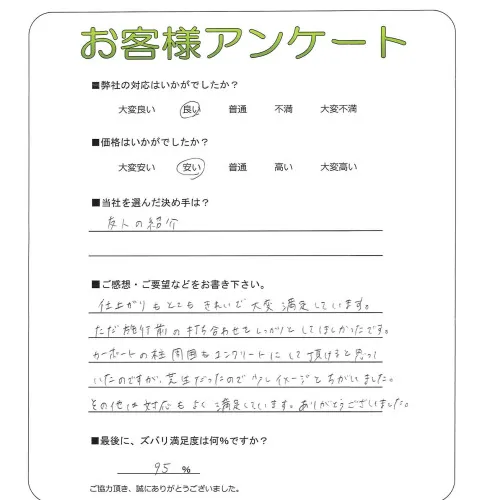 お客様アンケート
■弊社の対応はいかがでしたか？
大変良い 良い 普通 不満 大変不満
■価格はいかがでしたか？
大変安い 安い 普通 高い 大変高い
■当社を選んだ決め手は？
友人の紹介
■ご感想・ご要望などをお書き下さい。
仕上がりもとてもきれいで大変満足しています。
ただ施行前の打ち合わせをしっかりとしてほしかったです。
カーポートの柱周囲もコンクリートにして頂けると思って
いたのですが、芝生だったので少しイメージとちがいました。
その他は対応もよく満足しています。ありがとうございました。
■最後に、ズバリ満足度は何%ですか？
95 %
ご協力頂き、誠にありがとうございました。